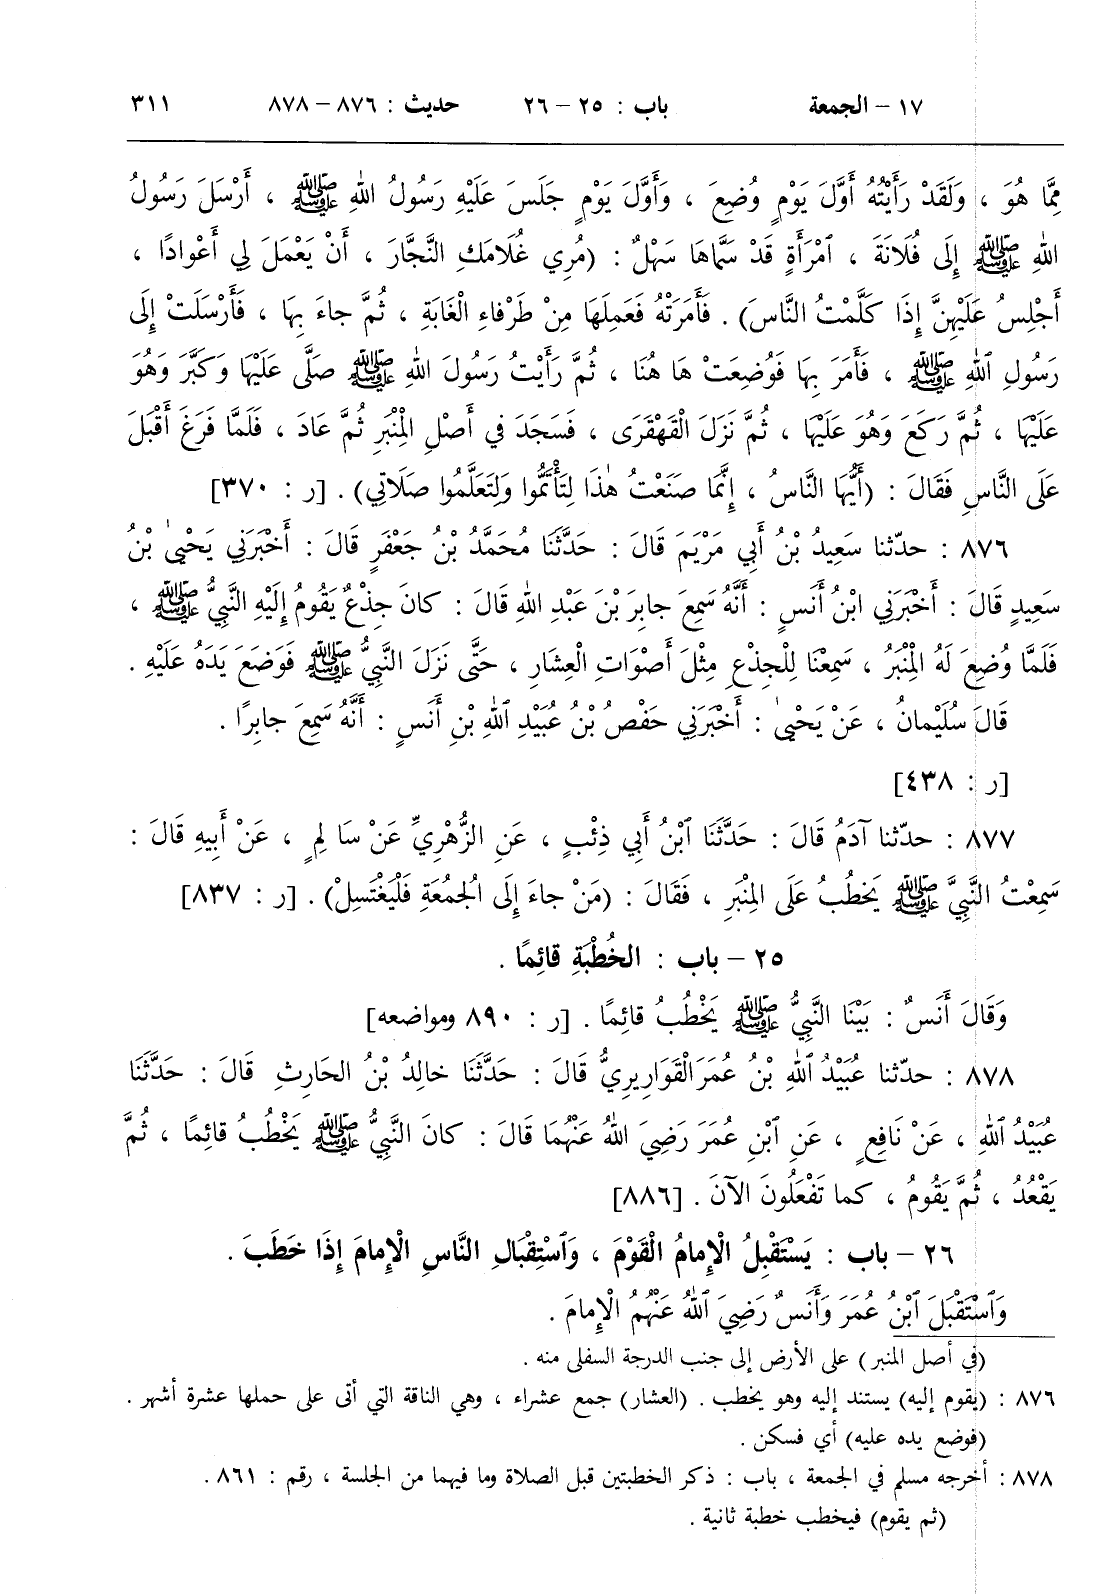 ١٧ – الجمعة باب : ٢٥ – ٢٦ حديث : ٨٧٦ – ٨٧٨ ٣١١
مِمَّا هُوَ ، وَلَقَدْ رَأَيْتُهُ أَوَّلَ يَوْمٍ وُضِعَ ، وَأَوَّلَ يَوْمٍ جَلَسَ عَلَيْهِ رَسُولُ اللهِ ﷺ ، أَرْسَلَ رَسُولُ
اللهِ ﷺ إِلَى فُلَانَةَ ، ٱمْرَأَةٍ قَدْ سَمَّاهَا سَهْلٌ : (مُرِي غُلَامَكِ النَّجَّارَ ، أَنْ يَعْمَلَ لِي أَعْوادًا ،
أَجْلِسُ عَلَيْهِنَّ إِذَا كَلَّمْتُ النَّاسَ) . فَأَمَرَتْهُ فَعَمِلَهَا مِنْ طَرْفاءِ الْغَابَةِ ، ثُمَّ جاءَ بِهَا ، فَأَرْسَلَتْ إِلَى
رَسُولِ ٱللهِ ﷺ ، فَأَمَرَ بِهَا فَوُضِعَتْ هَا هُنَا ، ثُمَّ رَأَيْتُ رَسُولَ اللهِ ﷺ صَلَّى عَلَيْهَا وَكَبَّرَ وَهُوَ
عَلَيْهَا ، ثُمَّ رَكَعَ وَهُوَ عَلَيْهَا ، ثُمَّ نَزَلَ الْقَهْقَرَى ، فَسَجَدَ فِي أَصْلِ الْمِنْبَرِ ثُمَّ عَادَ ، فَلَمَّا فَرَغَ أَقْبَلَ
عَلَى النَّاسِ فَقَالَ : (أَيُّهَا النَّاسُ ، إِنَّمَا صَنَعْتُ هٰذَا لِتَأْتَمُّوا وَلِتَعَلَّمُوا صَلَاتِي) . [ر : ٣٧٠]
٨٧٦ : حدّثنا سَعِيدُ بْنُ أَبِي مَرْيَمَ قَالَ : حَدَّثَنَا مُحَمَّدُ بْنُ جَعْفَرٍ قَالَ : أَخْبَرَنِي يَحْيىٰ بْنُ
سَعِيدٍ قَالَ : أَخْبَرَنِي ابْنُ أَنَسٍ : أَنَّهُ سَمِعَ جابِرَ بْنَ عَبْدِ اللهِ قَالَ : كانَ جِذْعٌ يَقُومُ إِلَيْهِ النَّبِيُّ ﷺ ،
فَلَمَّا وُضِعَ لَهُ الْمِنْبَرُ ، سَمِعْنَا لِلْجِذْعِ مِثْلَ أَصْوَاتِ الْعِشَارِ ، حَتَّى نَزَلَ النَّبِيُّ ﷺ فَوَضَعَ يَدَهُ عَلَيْهِ .
قَالَ سُلَيْمانُ ، عَنْ يَحْيىٰ : أَخْبَرَنِي حَفْصُ بْنُ عُبَيْدِ ٱللهِ بْنِ أَنَسٍ : أَنَّهُ سَمِعَ جابِرًا .
[ر : ٤٣٨]
٨٧٧ : حدّثنا آدَمُ قَالَ : حَدَّثَنَا ٱبْنُ أَبِي ذِئْبٍ ، عَنِ الزُّهْرِيِّ عَنْ سَا لِمٍ ، عَنْ أَبِيهِ قَالَ :
سَمِعْتُ النَّبِيَّ ﷺ يَخْطُبُ عَلَى الْمِنْبَرِ ، فَقَالَ : (مَنْ جاءَ إِلَى الْجُمُعَةِ فَلْيَغْتَسِلْ) . [ر : ٨٣٧]
٢٥ – باب : الخُطْبَةِ قائِمًا .
وَقَالَ أَنَسٌ : بَيْنَا النَّبِيُّ ﷺ يَخْطُبُ قائِمًا . [ر : ٨٩٠ ومواضعه]
٨٧٨ : حدّثنا عُبَيْدُ ٱللهِ بْنُ عُمَرَ الْقَوَارِيرِيُّ قَالَ : حَدَّثَنَا خالِدُ بْنُ الحَارِثِ قَالَ : حَدَّثَنَا
عُبَيْدُ ٱللهِ ، عَنْ نَافِعٍ ، عَنِ ٱبْنِ عُمَرَ رَضِيَ اللهُ عَنْهُمَا قَالَ : كانَ النَّبِيُّ ﷺ يَخْطُبُ قائِمًا ، ثُمَّ
يَقْعُدُ ، ثُمَّ يَقُومُ ، كما تَفْعَلُونَ الآنَ . [٨٨٦]
٢٦ – باب : يَسْتَقْبِلُ الْإِمامُ الْقَوْمَ ، وَٱسْتِقْبَالِ النَّاسِ الْإِمامَ إِذَا خَطَبَ .
وَٱسْتَقْبَلَ ٱبْنُ عُمَرَ وَأَنَسٌ رَضِيَ ٱللهُ عَنْهُمُ الْإِمامَ .
(في أصل المنبر) على الأرض إلى جنب الدرجة السفلى منه .
٨٧٦ : (يقوم إليه) يستند إليه وهو يخطب . (العشار) جمع عشراء ، وهي الناقة التي أتى على حملها عشرة أشهر .
(فوضع يده عليه) أي فسكن .
٨٧٨ : أخرجه مسلم في الجمعة ، باب : ذكر الخطبتين قبل الصلاة وما فيهما من الجلسة ، رقم : ٨٦١ .
(ثم يقوم) فيخطب خطبة ثانية .